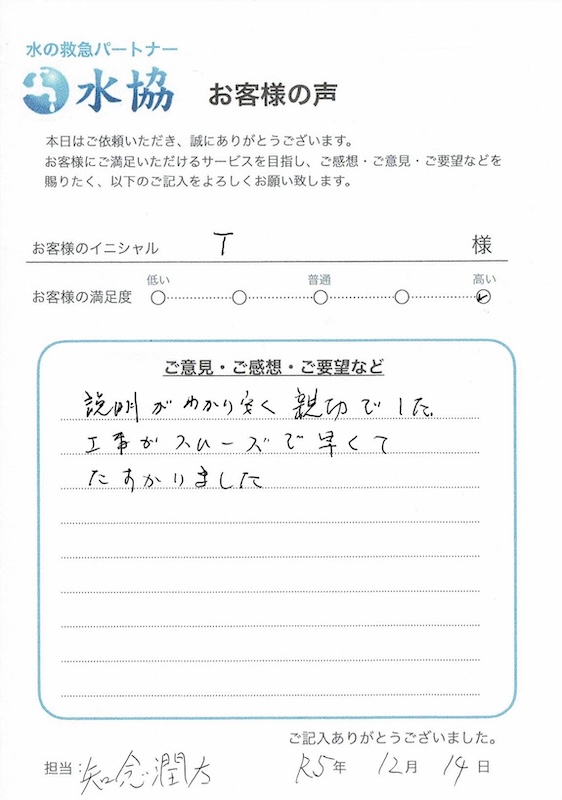 水の救急パートナー
水協 お客様の声
本日はご依頼いただき、誠にありがとうございます。
お客様にご満足いただけるサービスを目指し、ご感想・ご意見・ご要望などを
賜りたく、以下のご記入をよろしくお願い致します。
お客様のイニシャル T 様
低い 普通 高い
お客様の満足度
ご意見・ご感想・ご要望など
説明がわかり安く親切でした。
工事がスムーズで早くて
たすかりました
ご記入ありがとうございました。
担当:知念潤方 R5年 12月 14日